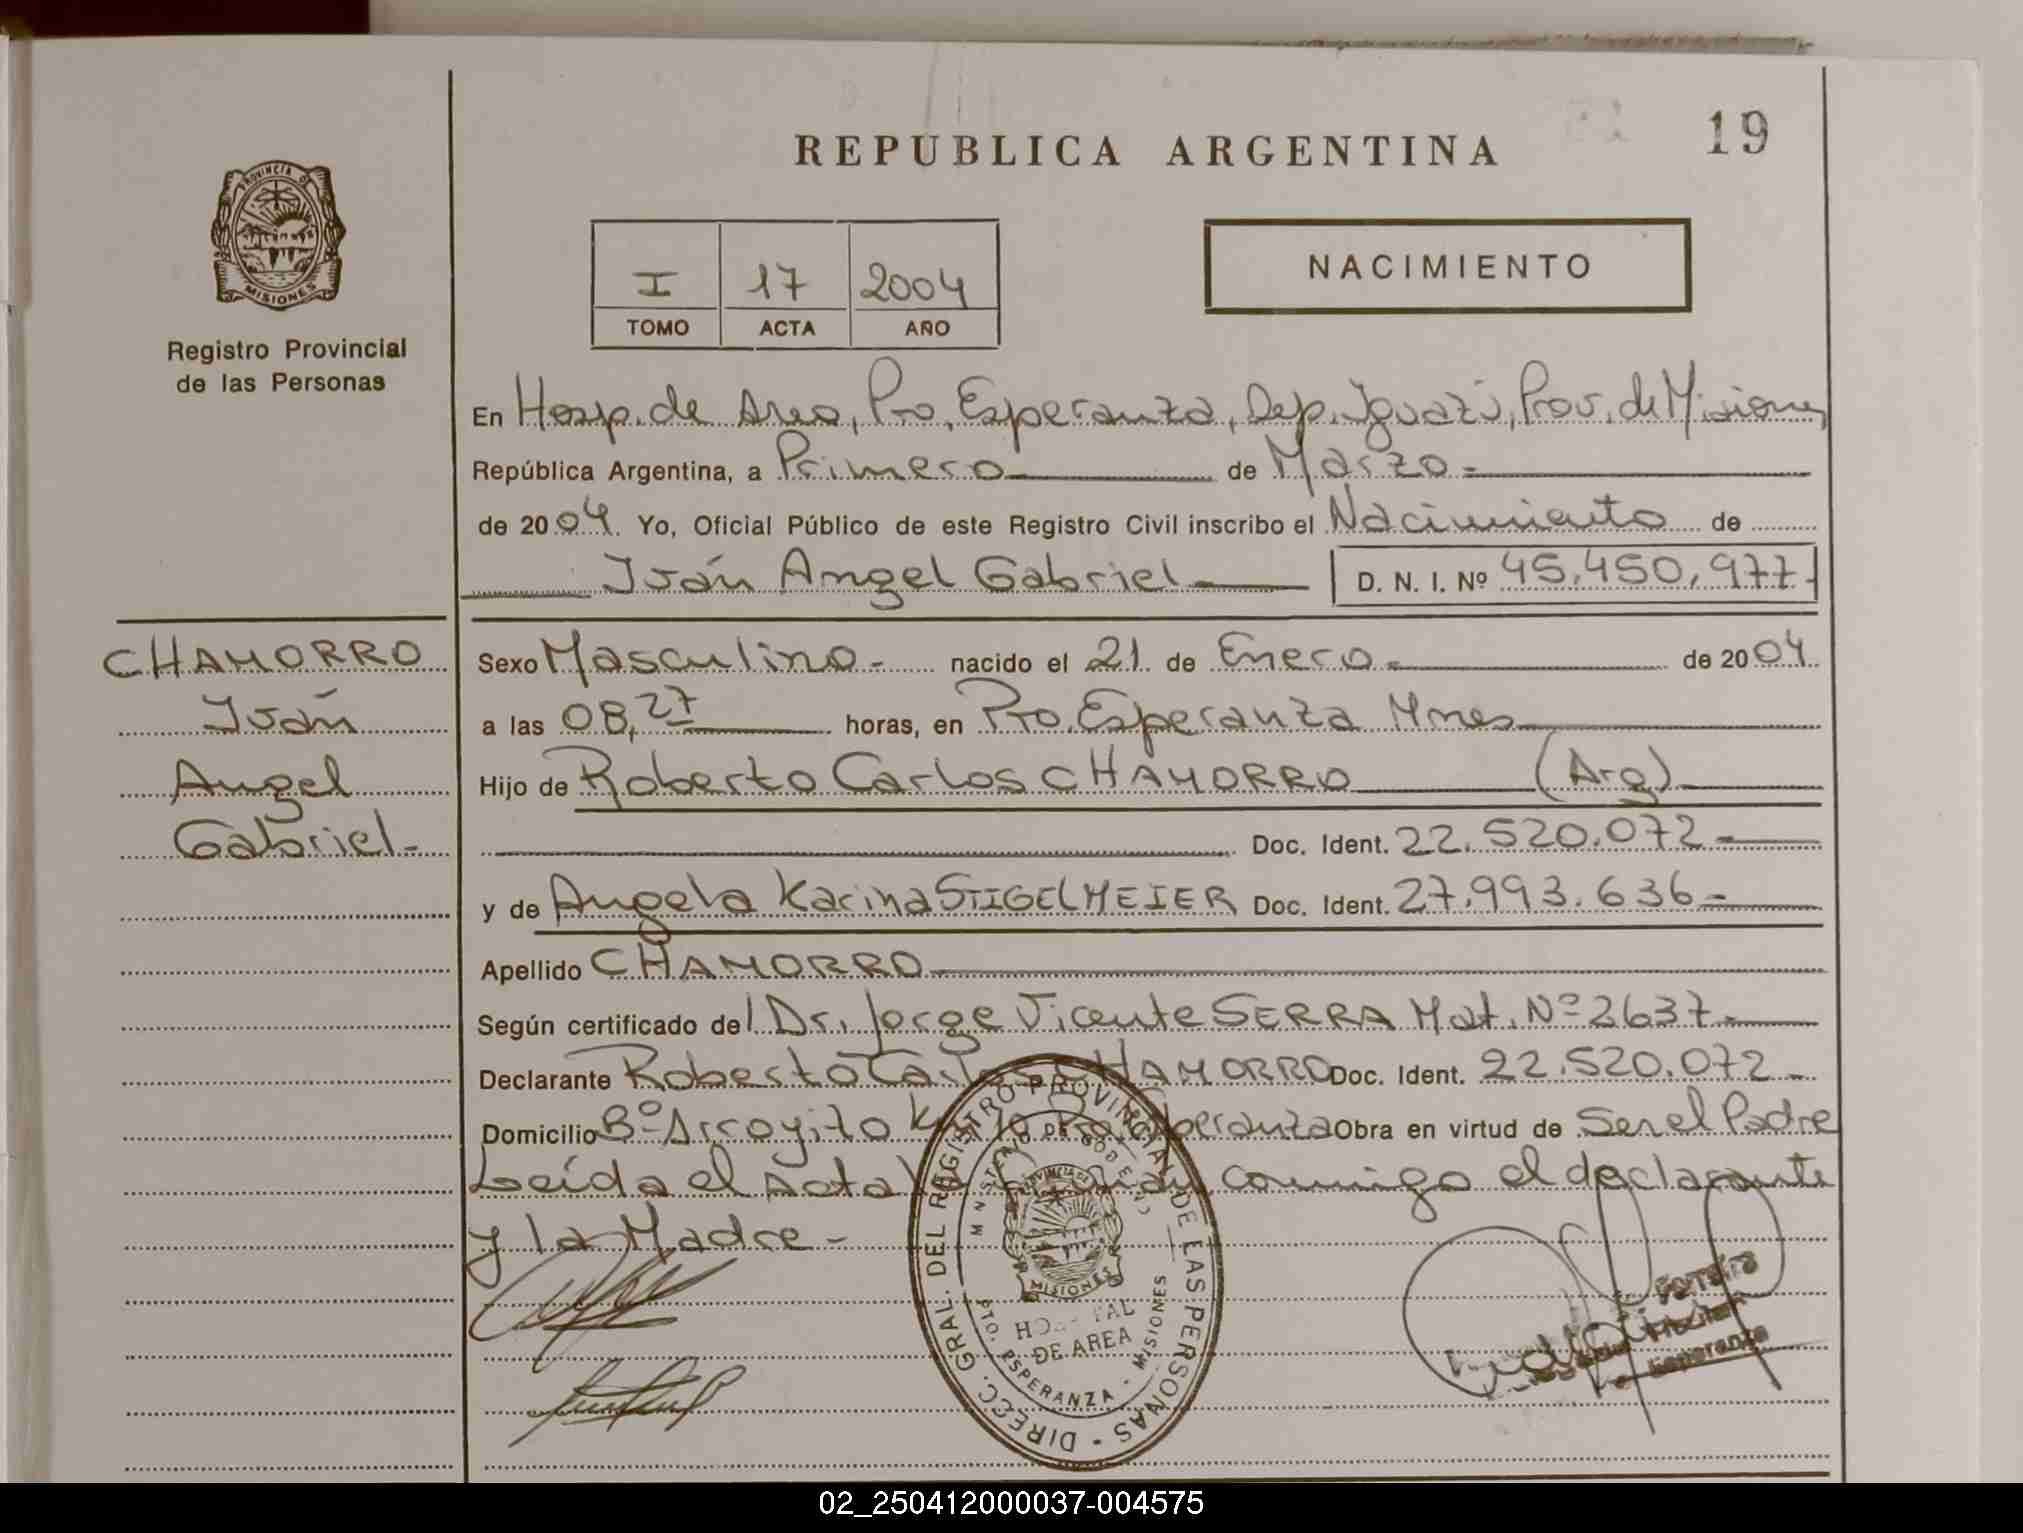 REPUBLICA ARGENTINA
19
PROVINCIA DE
MISIONES
Registro Provincial
de las Personas
I 17 2004
TOMO ACTA AÑO
NACIMIENTO
En Hosp. de Area, Pto. Esperanza, Dep. Iguazú, Prov. de Misiones,
República Argentina, a Primero de Marzo
de 2004. Yo, Oficial Público de este Registro Civil inscribo el Nacimiento de
Iván Angel Gabriel D. N. I. Nº 45.450.977
CHAMORRO
Iván
Angel
Gabriel-
Sexo Masculino- nacido el 21 de Enero de 2004
a las 08,27 horas, en Pto. Esperanza Mnes
Hijo de Roberto Carlos CHAMORRO (Arg)
Doc. Ident. 22.520.072
y de Angela Karina STIGELMEIER Doc. Ident. 27.993.636
Apellido CHAMORRO
Según certificado del Dr. Jorge Vicente SERRA Mat. Nº 2637
Declarante Roberto Carlos CHAMORRO Doc. Ident. 22.520.072
Domicilio Bº Arroyito Pto. Esperanza Obra en virtud de Ser el Padre
Leída el Acta la firman conmigo el declarante
y la Madre-
DIRECC. GRAL. DEL REGISTRO PROVINCIAL DE LAS PERSONAS
MINISTERIO DE GOBIERNO
PROVINCIA DE
MISIONES
HOSPITAL
DE AREA
PTO. ESPERANZA - MISIONES
Ferreira
Esperanza
02_250412000037-004575